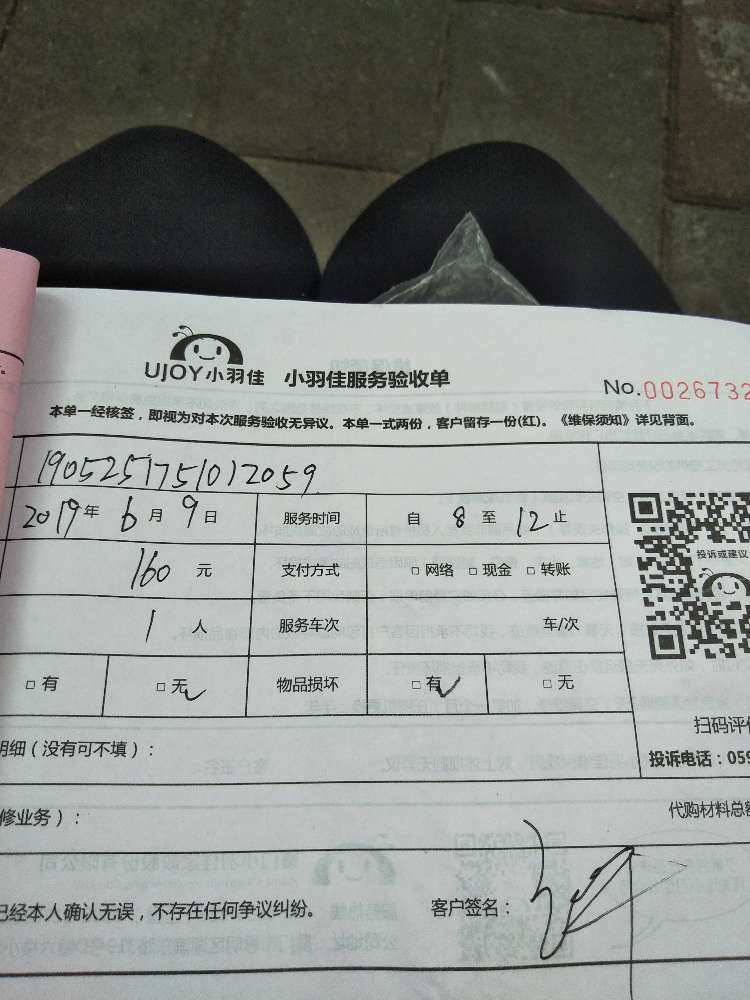 UJOY小羽佳 小羽佳服务验收单
No.0026732
本单一经核签，即视为对本次服务验收无异议。本单一式两份，客户留存一份(红)。《维保须知》详见背面。
1905251751012059
2019年 6月 9日 服务时间 自 8 至 12 止
投诉或建议
160 元 支付方式 □网络 □现金 □转账
1 人 服务车次 车/次
□有 □无 物品损坏 □有 □无
扫码评价
明细（没有可不填）：
投诉电话：059
修业务）：
代购材料总
已经本人确认无误，不存在任何争议纠纷。 客户签名：